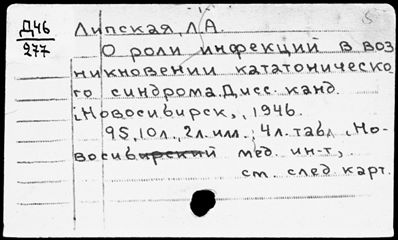 Д46
277
Липская, Л.А.
О роли инфекций в воз
никновении кататоническо
го синдрома. Дисс. канд.
[Новосибирск,, 1946.
95, 10 л., 2 л. илл., 4 л. табл. (Но-
восибирский мед. ин-т,
см. след карт.